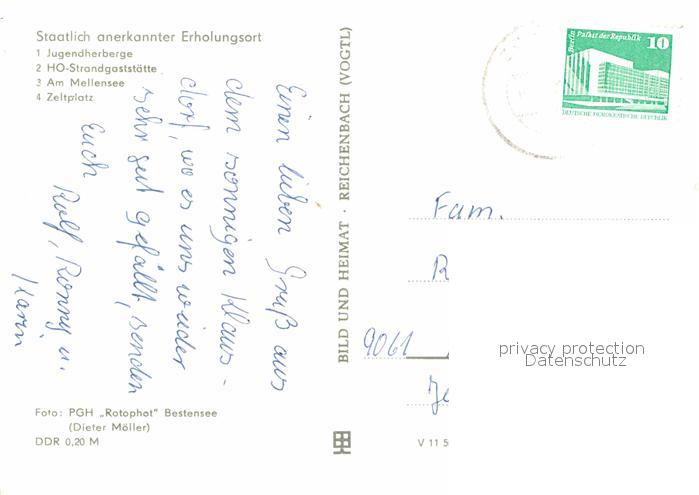 Staatlich anerkannter Erholungsort
1 Jugendherberge
2 HO-Strandgaststätte
3 Am Mellensee
4 Zeltplatz
Einen lieben Gruß aus
dem sonnigen Klaus-
dorf, wo es uns wieder
sehr gut gefällt, senden
Euch
Rolf, Ronny u.
Karin
Foto: PGH „Rotophot" Bestensee
(Dieter Möller)
DDR 0,20 M
BILD UND HEIMAT · REICHENBACH (VOGTL)
V 11 5
Berlin Palast der Republik
10
DEUTSCHE DEMOKRATISCHE REPUBLIK
Fam.
R
9061
Je
privacy protection
Datenschutz